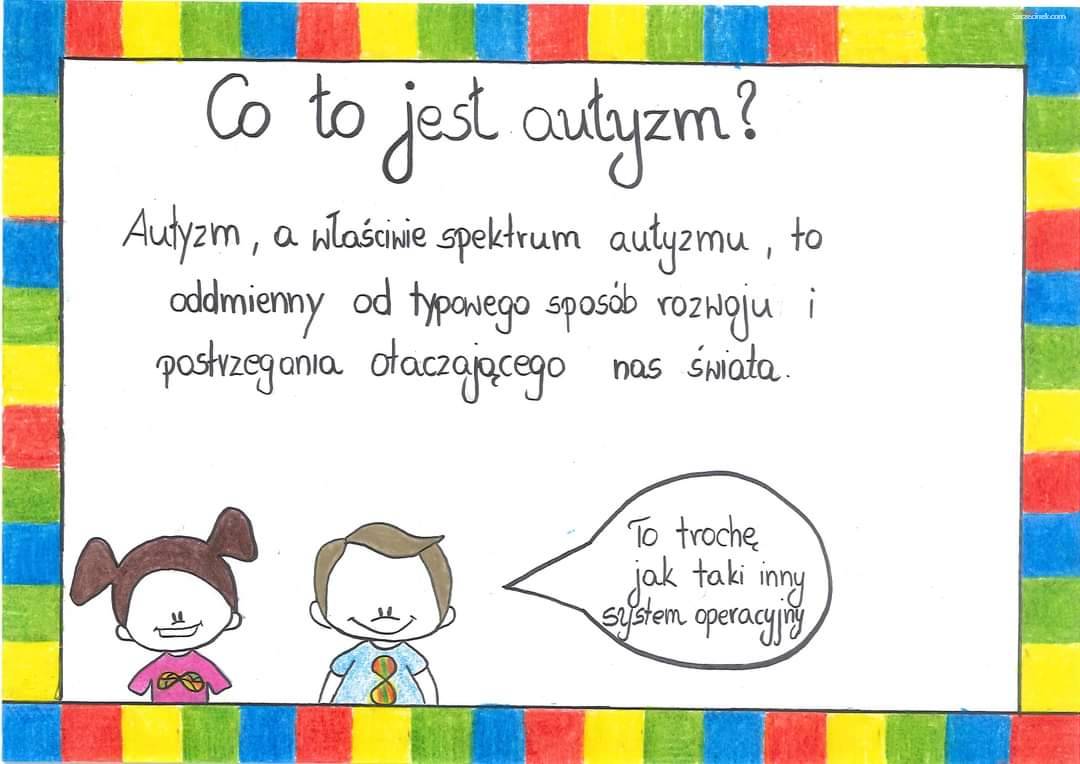 Szczecinek.com
Co to jest autyzm?
Autyzm, a właściwie spektrum autyzmu, to
oddmienny od typowego sposób rozwoju i
postrzegania otaczającego nas świata.
To trochę
jak taki inny
system operacyjny